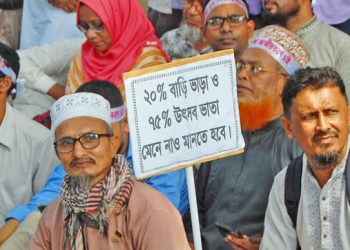 ২০% বাড়ি ভাড়া ও
৭৫% উৎসব ভাতা
মেনে নাও মানতে হবে।